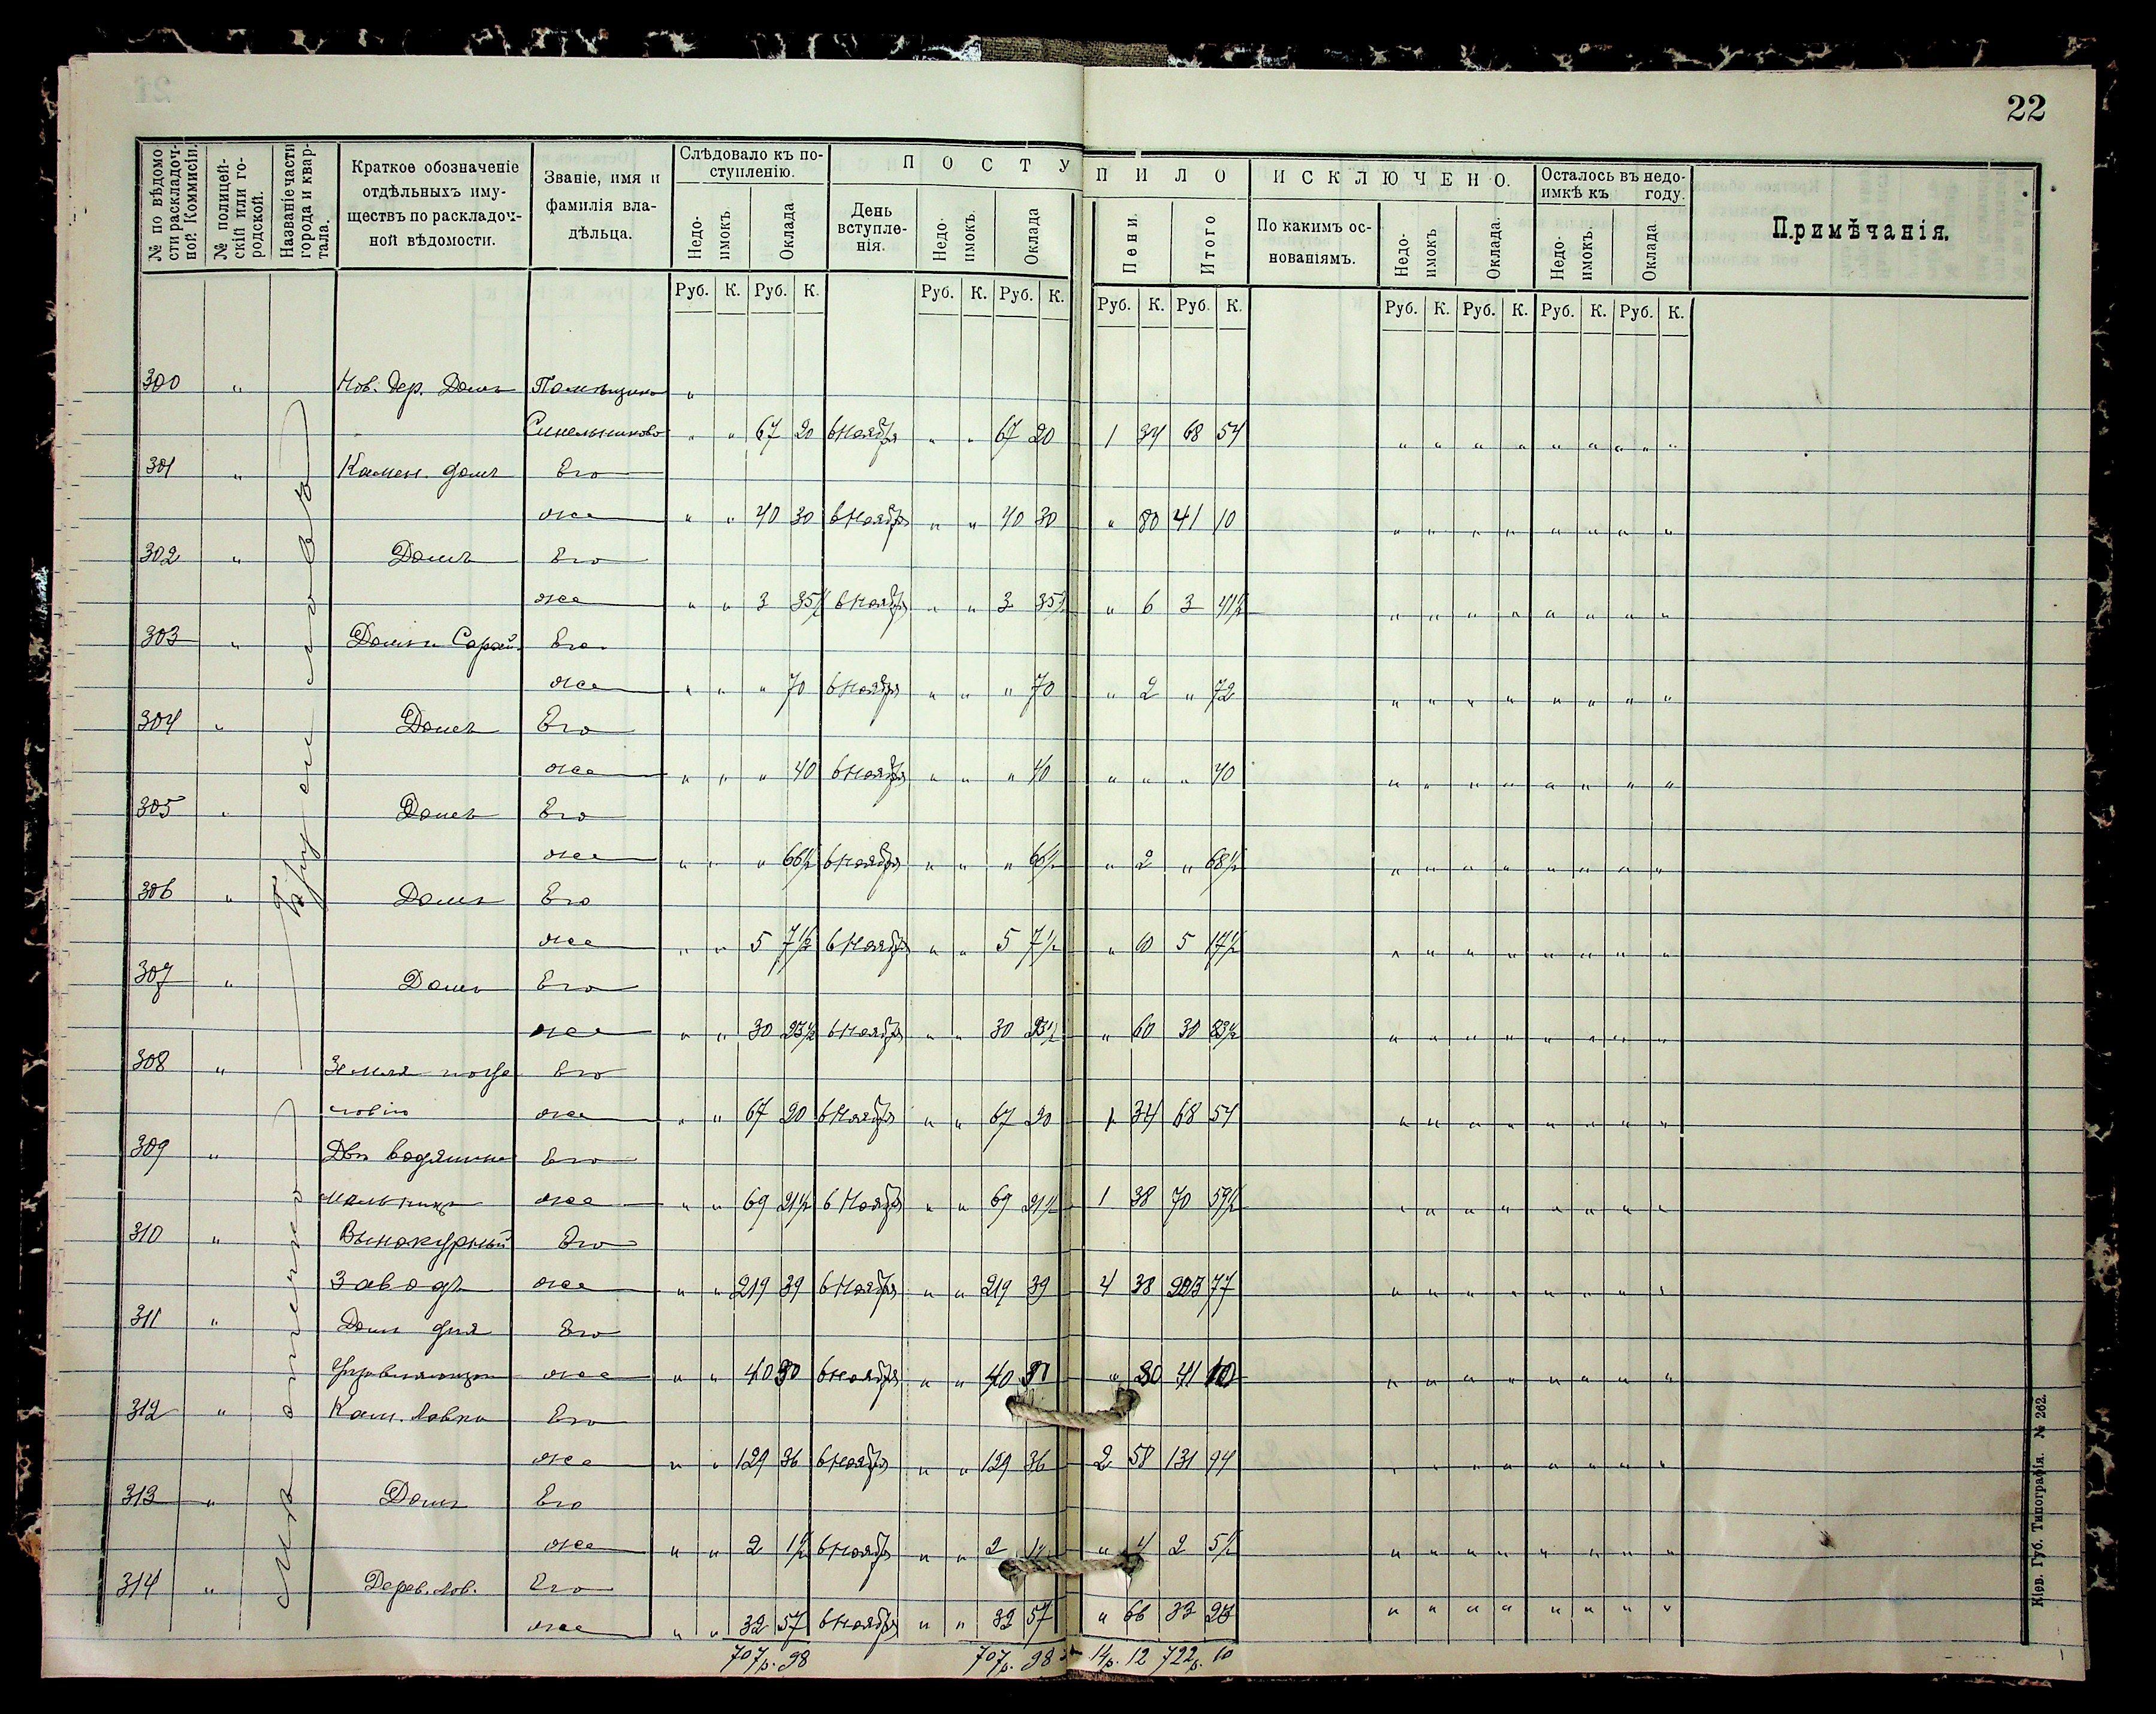 22
№ по вѣдомости раскладочной Коммисіи.
№ полицейскій или городской.
Названіе части города и квартала.
Краткое обозначеніе отдѣльныхъ имуществъ по раскладочной вѣдомости.
Званіе, имя и фамилія владѣльца.
Слѣдовало къ поступленію.
Недоимокъ.
Оклада
П О С Т У П И Л О
День вступленія.
Недоимокъ.
Оклада
Пени.
Итого
И С К Л Ю Ч Е Н О.
По какимъ основаніямъ.
Недоимокъ
Оклада.
Осталось въ недоимкѣ къ году.
Недоимокъ.
Оклада
Примѣчанія.
Руб. К. Руб. К. Руб. К. Руб. К. Руб. К. Руб. К. Руб. К. Руб. К. Руб. К. Руб. К.
300 " Нов. дер. Домъ "
" " 67 20 6 Ноября " " 67 20 1 34 68 54 " " " " " " " "
301 " Камен. домъ Его
же " " 40 30 6 Ноября " " 40 30 " 80 41 10 " " " " " " " "
302 " Домъ Его
же " " 3 35½ 6 Ноября " " 3 35½ " 6 3 41½ " " " " " " " "
303 " Домъ и Сарай Его
же " " " 70 6 Ноября " " " 70 " 2 " 72 " " " " " " " "
304 " Домъ Его
же " " " 40 6 Ноября " " " 40 " " " 40 " " " " " " " "
305 " Домъ Его
же " " " 66½ 6 Ноября " " " 66½ " 2 " 68½ " " " " " " " "
306 " Домъ Его
же " " 5 7½ 6 Ноября " " 5 7½ " 10 5 17½ " " " " " " " "
307 " Домъ Его
же " " 30 23½ 6 Ноября " " 30 23½ " 60 30 83½ " " " " " " " "
308 " Земля Его
же " " 67 20 6 Ноября " " 67 20 1 34 68 54 " " " " " " " "
309 " Двѣ водяныхъ Его
мельницы же " " 69 21½ 6 Ноября " " 69 21½ 1 38 70 59½ " " " " " " " "
310 " Винокурный Его
Заводъ же " " 219 39 6 Ноября " " 219 39 4 38 223 77 " " " " " " " "
311 " Домъ для Его
управляющаго же " " 40 30 6 Ноября " " 40 30 " 80 41 10 " " " " " " " "
312 " Кам. Лавки Его
же " " 129 36 6 Ноября " " 129 36 2 58 131 94 " " " " " " " "
313 " Домъ Его
же " " 2 1½ 6 Ноября " " 2 1½ " 4 2 5½ " " " " " " " "
314 " Дерев. лав. Его
же " " 32 57 6 Ноября " " 32 57 " 66 33 23 " " " " " " " "
707р. 98 707р. 98 14р. 12 722р. 10
Кіев. Губ. Типографія. № 262.